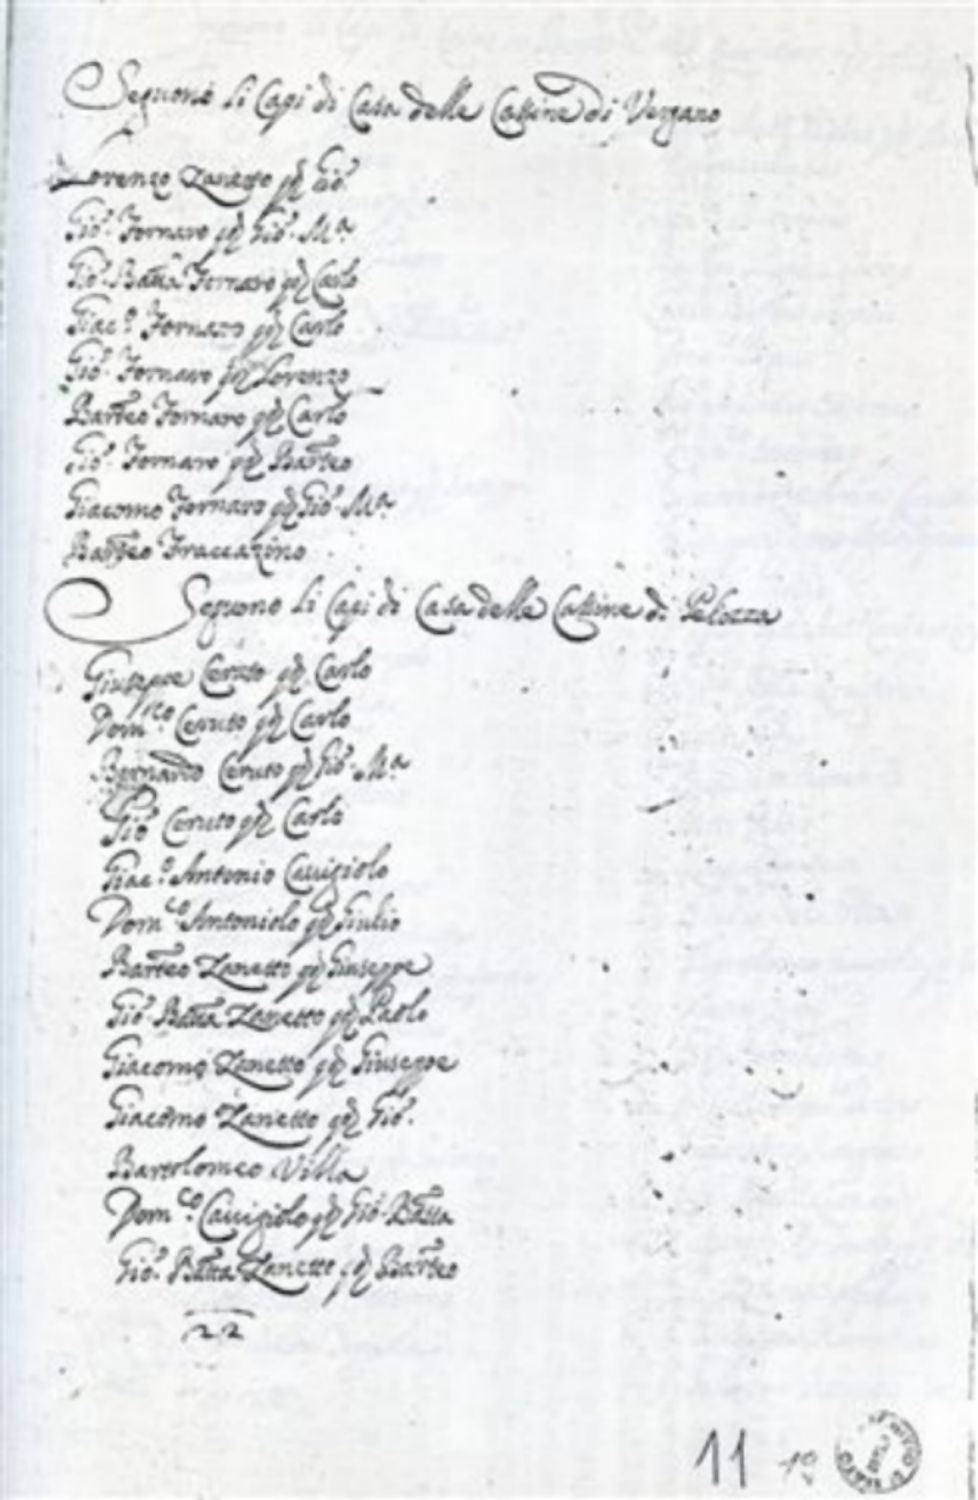 Seguono li Capi di Casa delle Cassine di Vergano
Lorenzo Zanetto qm Gio.
Gio. Fornaro qm Gio. Ma.
Gio. Batta Fornaro qm Carlo
Giac.o Fornaro qm Carlo
Gio. Fornaro qm Lorenzo
Barteo Fornaro qm Carlo
Gio. Fornaro qm Barteo
Giacomo Fornaro qm Gio. Ma.
Barteo Fraccazino
Seguono li Capi di Casa delle Cassine di
Giuseppe Ceruto qm Carlo
Dom.co Ceruto qm Carlo
Bernardo Ceruto qm Gio. Ma.
Gio Ceruto qm Carlo
Giac.o Antonio Cavigiolo
Dom.co Antoniolo qm Giulio
Barteo Zanetto qm Giuseppe
Gio Batta Zanetto qm Paolo
Giacomo Zanetto qm Giuseppe
Giacomo Zanetto qm Gio.
Bartolomeo Villa
Dom.co Cavigiolo qm Gio Batta
Gio. Batta Zanetto qm Barteo
22
11